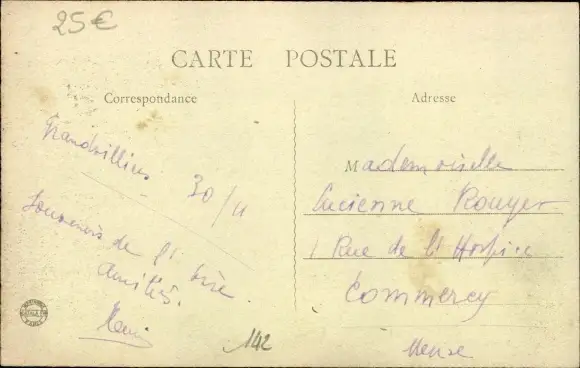 25€
CARTE POSTALE
Correspondance
Adresse
Grandvilliers
30/11
Souvenirs de l'Oise.
Amitiés.
Mademoiselle
Lucienne Rouyer
1 Rue de l'Hospice
Commercy
Meuse
142